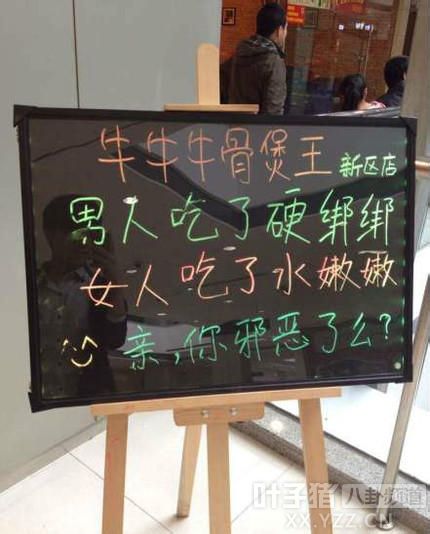 牛牛牛骨煲王 新区店
男人吃了硬绑绑
女人吃了水嫩嫩
亲,你邪恶了么?
叶子猪 八卦频道
XX.YZZ.CN